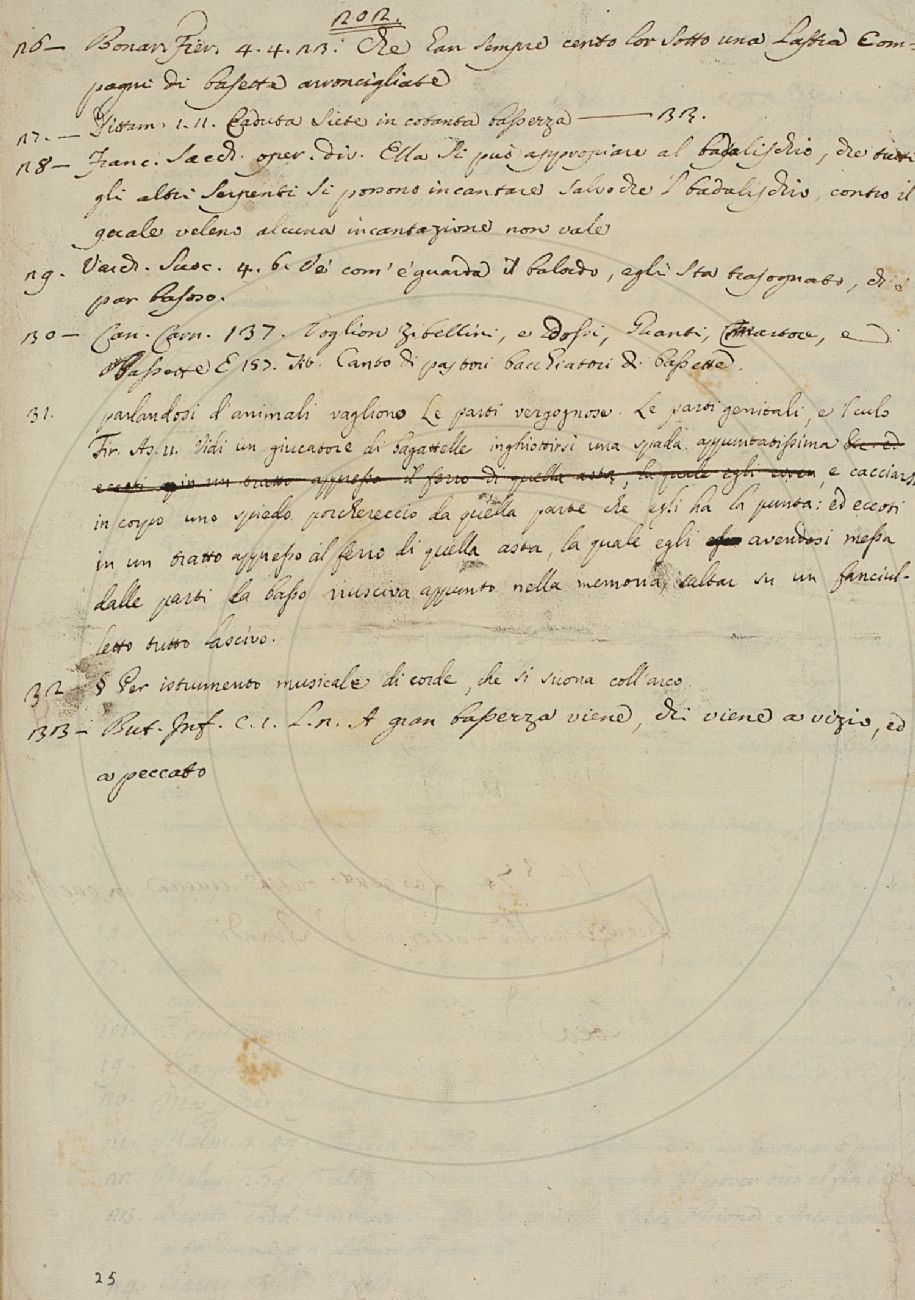 202.
26— Bonar. Fier. 4. 4. 23. Che han sempre cento lor sotto una lastra Com-
pagni di basette arroncigliate
27.— Dittam. 1. 11. Caduta siete in cotanta bassezza —— 33.
28— Franc. Sacch. oper. div. Ella si può appropiare al badalischio, che tutti
gli altri serpenti si possono incantare salvoche 'l badalischio, contro il
quale veleno alcuna incantazione non vale
29. Varch. Suoc. 4. 6. Ve' com' e' guarda il balordo, egli sta trasognato, ch' e'
par basoso.
30— Can. Carn. 137. Voglion zibellini, e dossi, Guanti, martore, e
Bassette E 157. Tit. Canto di pastori bacchiatori di bassette.
31. parlandosi d'animali vagliono Le parti vergognose. Le parti genitali, e 'l culo
Fir. As. 11. Vidi un giucatore di bagattelle inghiottirsi una spada appuntatissima
eccoti in un tratto appresso il ferro di quella asta, la quale egli, e cacciarsi
in corpo uno spiedo porchereccio da quella parte che egli ha la punta: ed eccoti
in un tratto appresso al ferro di quella asta, la quale egli avendosi messa
dalle parti da basso riusciva appunto nella memoria, saltar su un fanciul-
letto tutto lascivo.
32— § Per istrumento musicale di corde, che si suona coll'arco
33— But. Inf. C. 1. L. n. A gran bassezza viene, chi viene a vizio, ed
a peccato
25